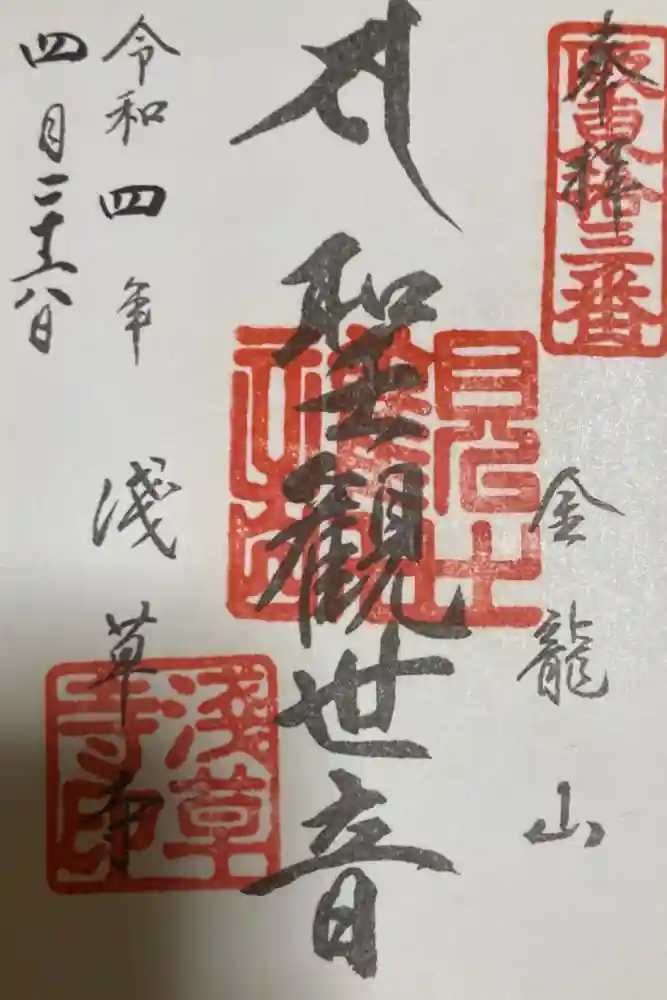 奉拝
坂東拾三番
金龍山
聖觀世音
令和四年
淺草寺
淺草寺印
四月二十八日